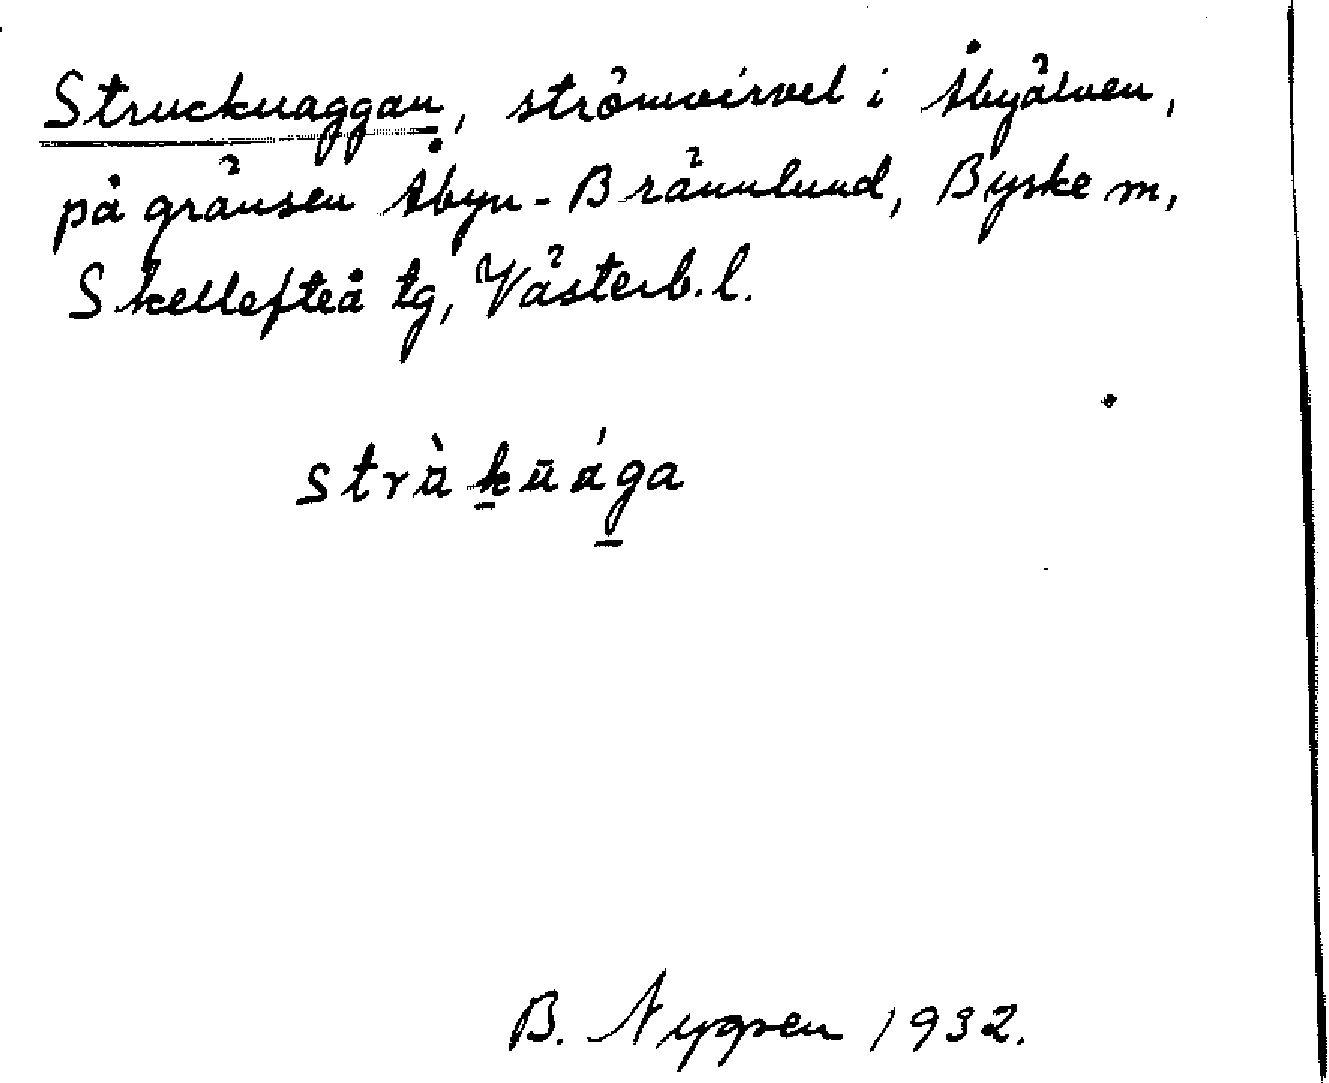 Strucknaggan, strömvirvel i Åbyälven,
på gränsen Åbyn-Brännlund, Byske sn,
Skellefteå tg, Västerb. l.
B. Nygren 1932.